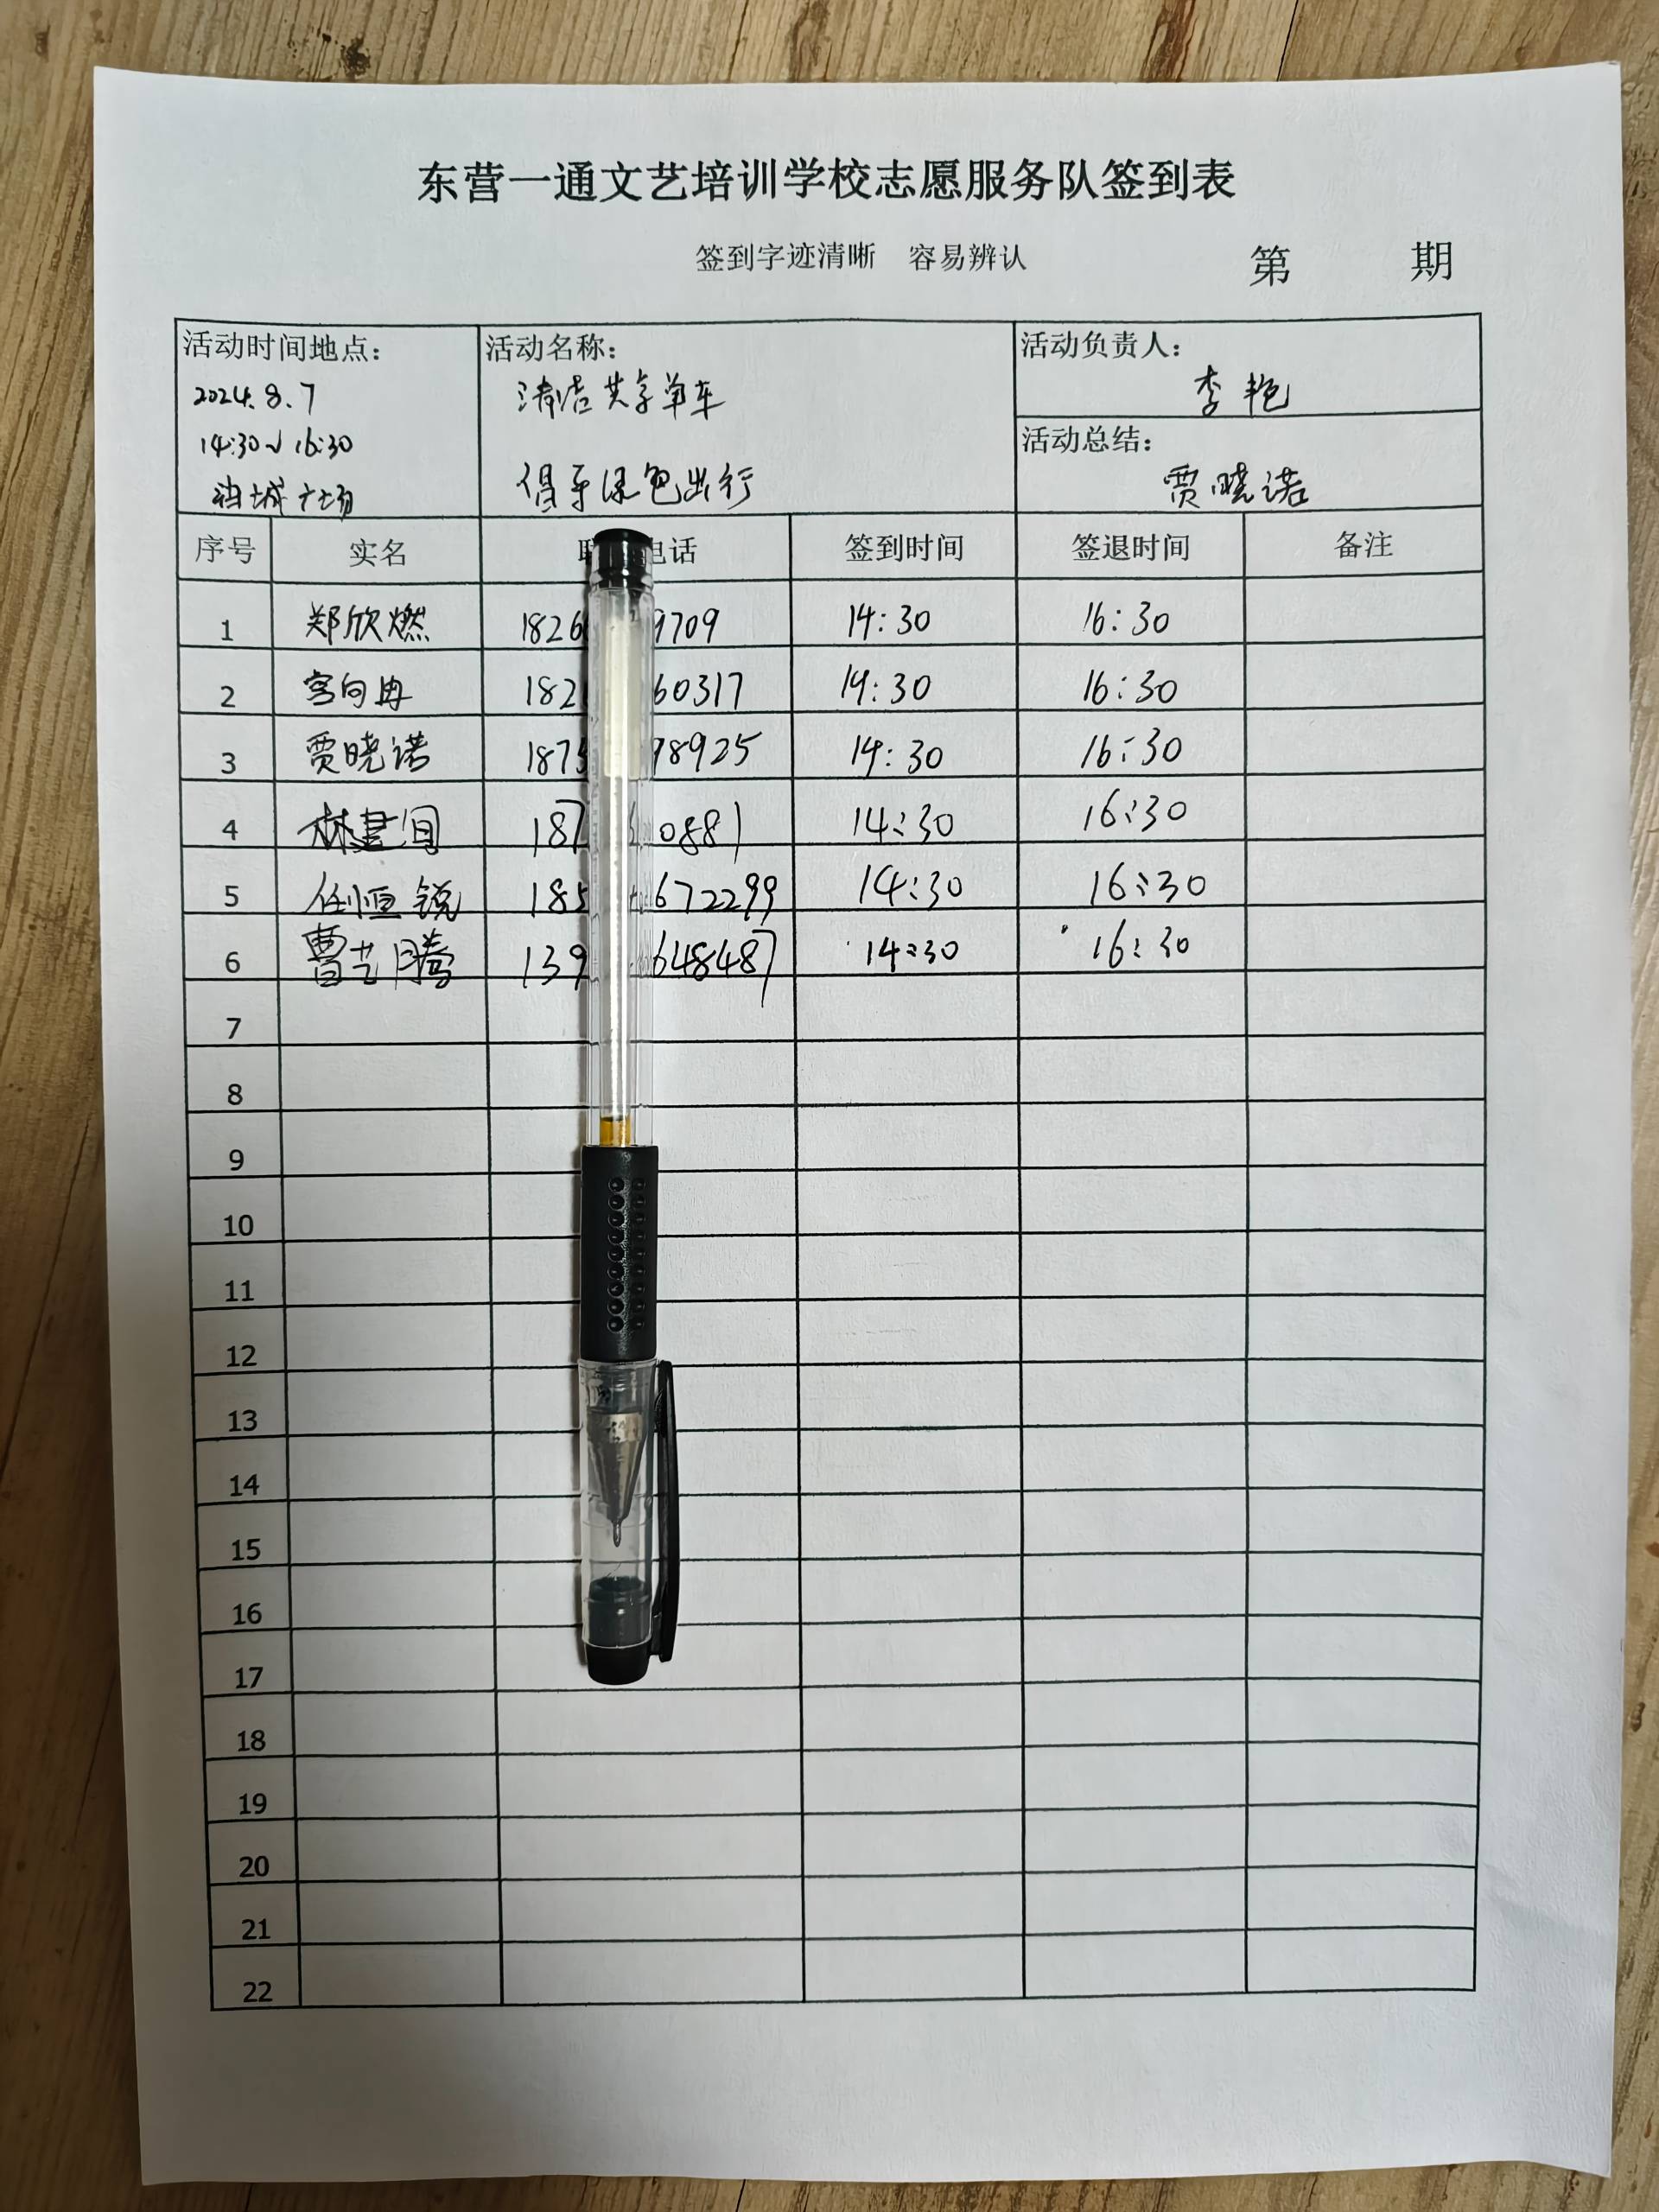 东营一通文艺培训学校志愿服务队签到表
签到字迹清晰 容易辨认
第 期
活动时间地点：
2024.8.7
14:30~16:30
广场
活动名称：
清洁共享单车
倡导绿色出行
活动负责人：
李艳
活动总结：
贾晓诺
序号 实名 电话 签到时间 签退时间 备注
1 郑欣燃 1826 9709 14:30 16:30
2 宫向冉 182 60317 14:30 16:30
3 贾晓诺 1875 98925 14:30 16:30
4 林 187 0881 14:30 16:30
5 任恒锐 185 672299 14:30 16:30
6 曹艺腾 139 648487 14:30 16:30
7
8
9
10
11
12
13
14
15
16
17
18
19
20
21
22